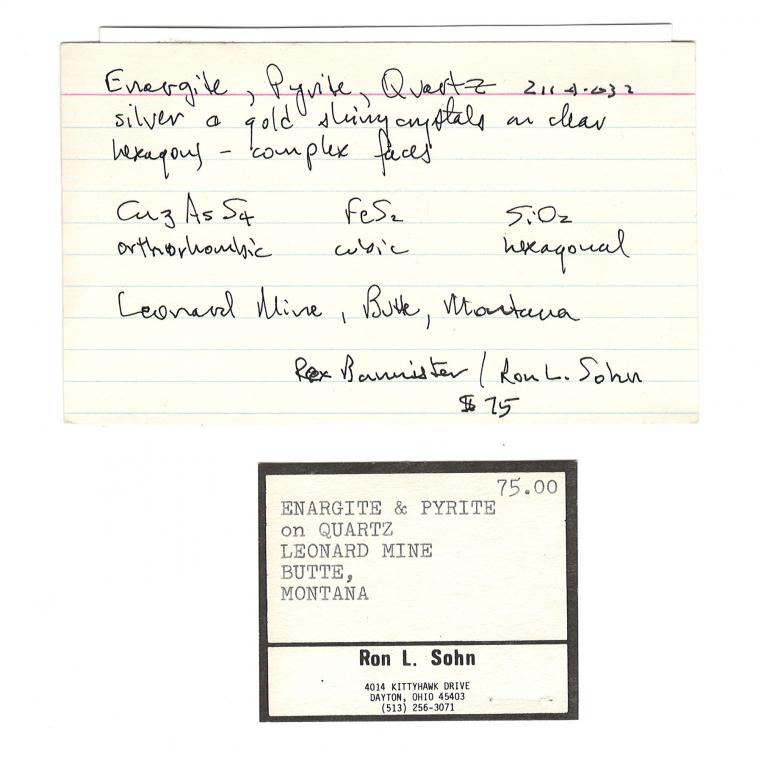 Enargite, Pyrite, Quartz
silver & gold shiny crystals on clear
hexagons - complex faces
Cu3 As S4 FeS2 SiO2
orthorhombic cubic hexagonal
Leonard Mine, Butte, Montana
Rex Bannister / Ron L. Sohn
$75
75.00
ENARGITE & PYRITE
on QUARTZ
LEONARD MINE
BUTTE,
MONTANA
Ron L. Sohn
4014 KITTYHAWK DRIVE
DAYTON, OHIO 45403
(513) 256-3071